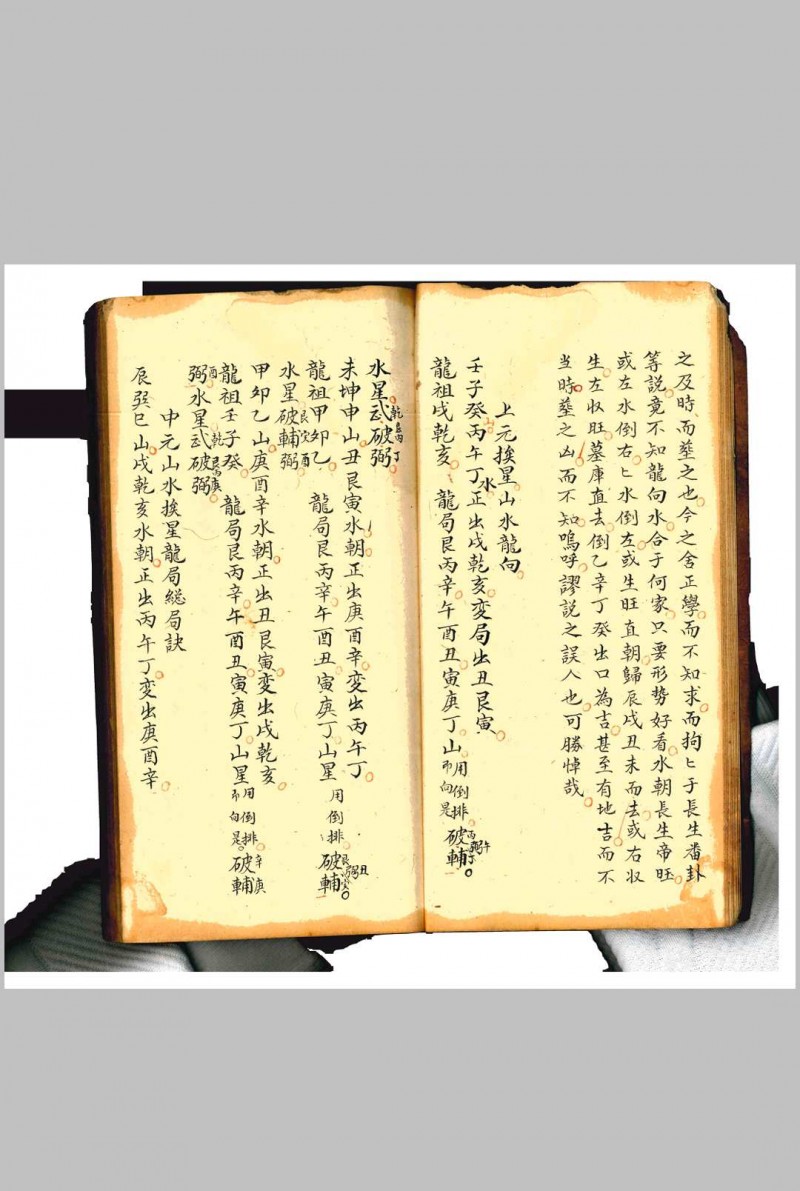 之及時而塟之也今之舍正學而不知求而拘匕于長生番卦
等說竟不知龍向水合于何家只要形勢好看水朝長生帝旺
或左水倒右匕水倒左或生旺直朝歸辰戌丑未而去或右収
生左収旺墓庫直去倒乙辛丁癸出口為吉甚至有地吉而不
当時塟之凶而不知嗚呼謬説之誤人也可勝悼哉
上元挨星山水龍向
壬子癸丙午丁水正出戌乾亥变局出丑艮寅
龍祖戌乾亥 龍局艮丙辛午酉丑寅庚丁山用倒排而向是破輔弼
水星武破弼
未坤申山丑艮寅水朝正出庚酉辛变出丙午丁
龍祖甲卯乙 龍局艮丙辛午酉丑寅庚丁山星用倒排破輔
水星破輔弼
甲卯乙山庚酉辛水朝正出丑艮寅变出戌乾亥
龍祖壬子癸 龍局艮丙辛午酉丑寅庚丁山星用倒排而向是破輔
弼水星武破弼
中元山水挨星龍局総局訣
辰巽巳山戌乾亥水朝正出丙午丁变出庚酉辛